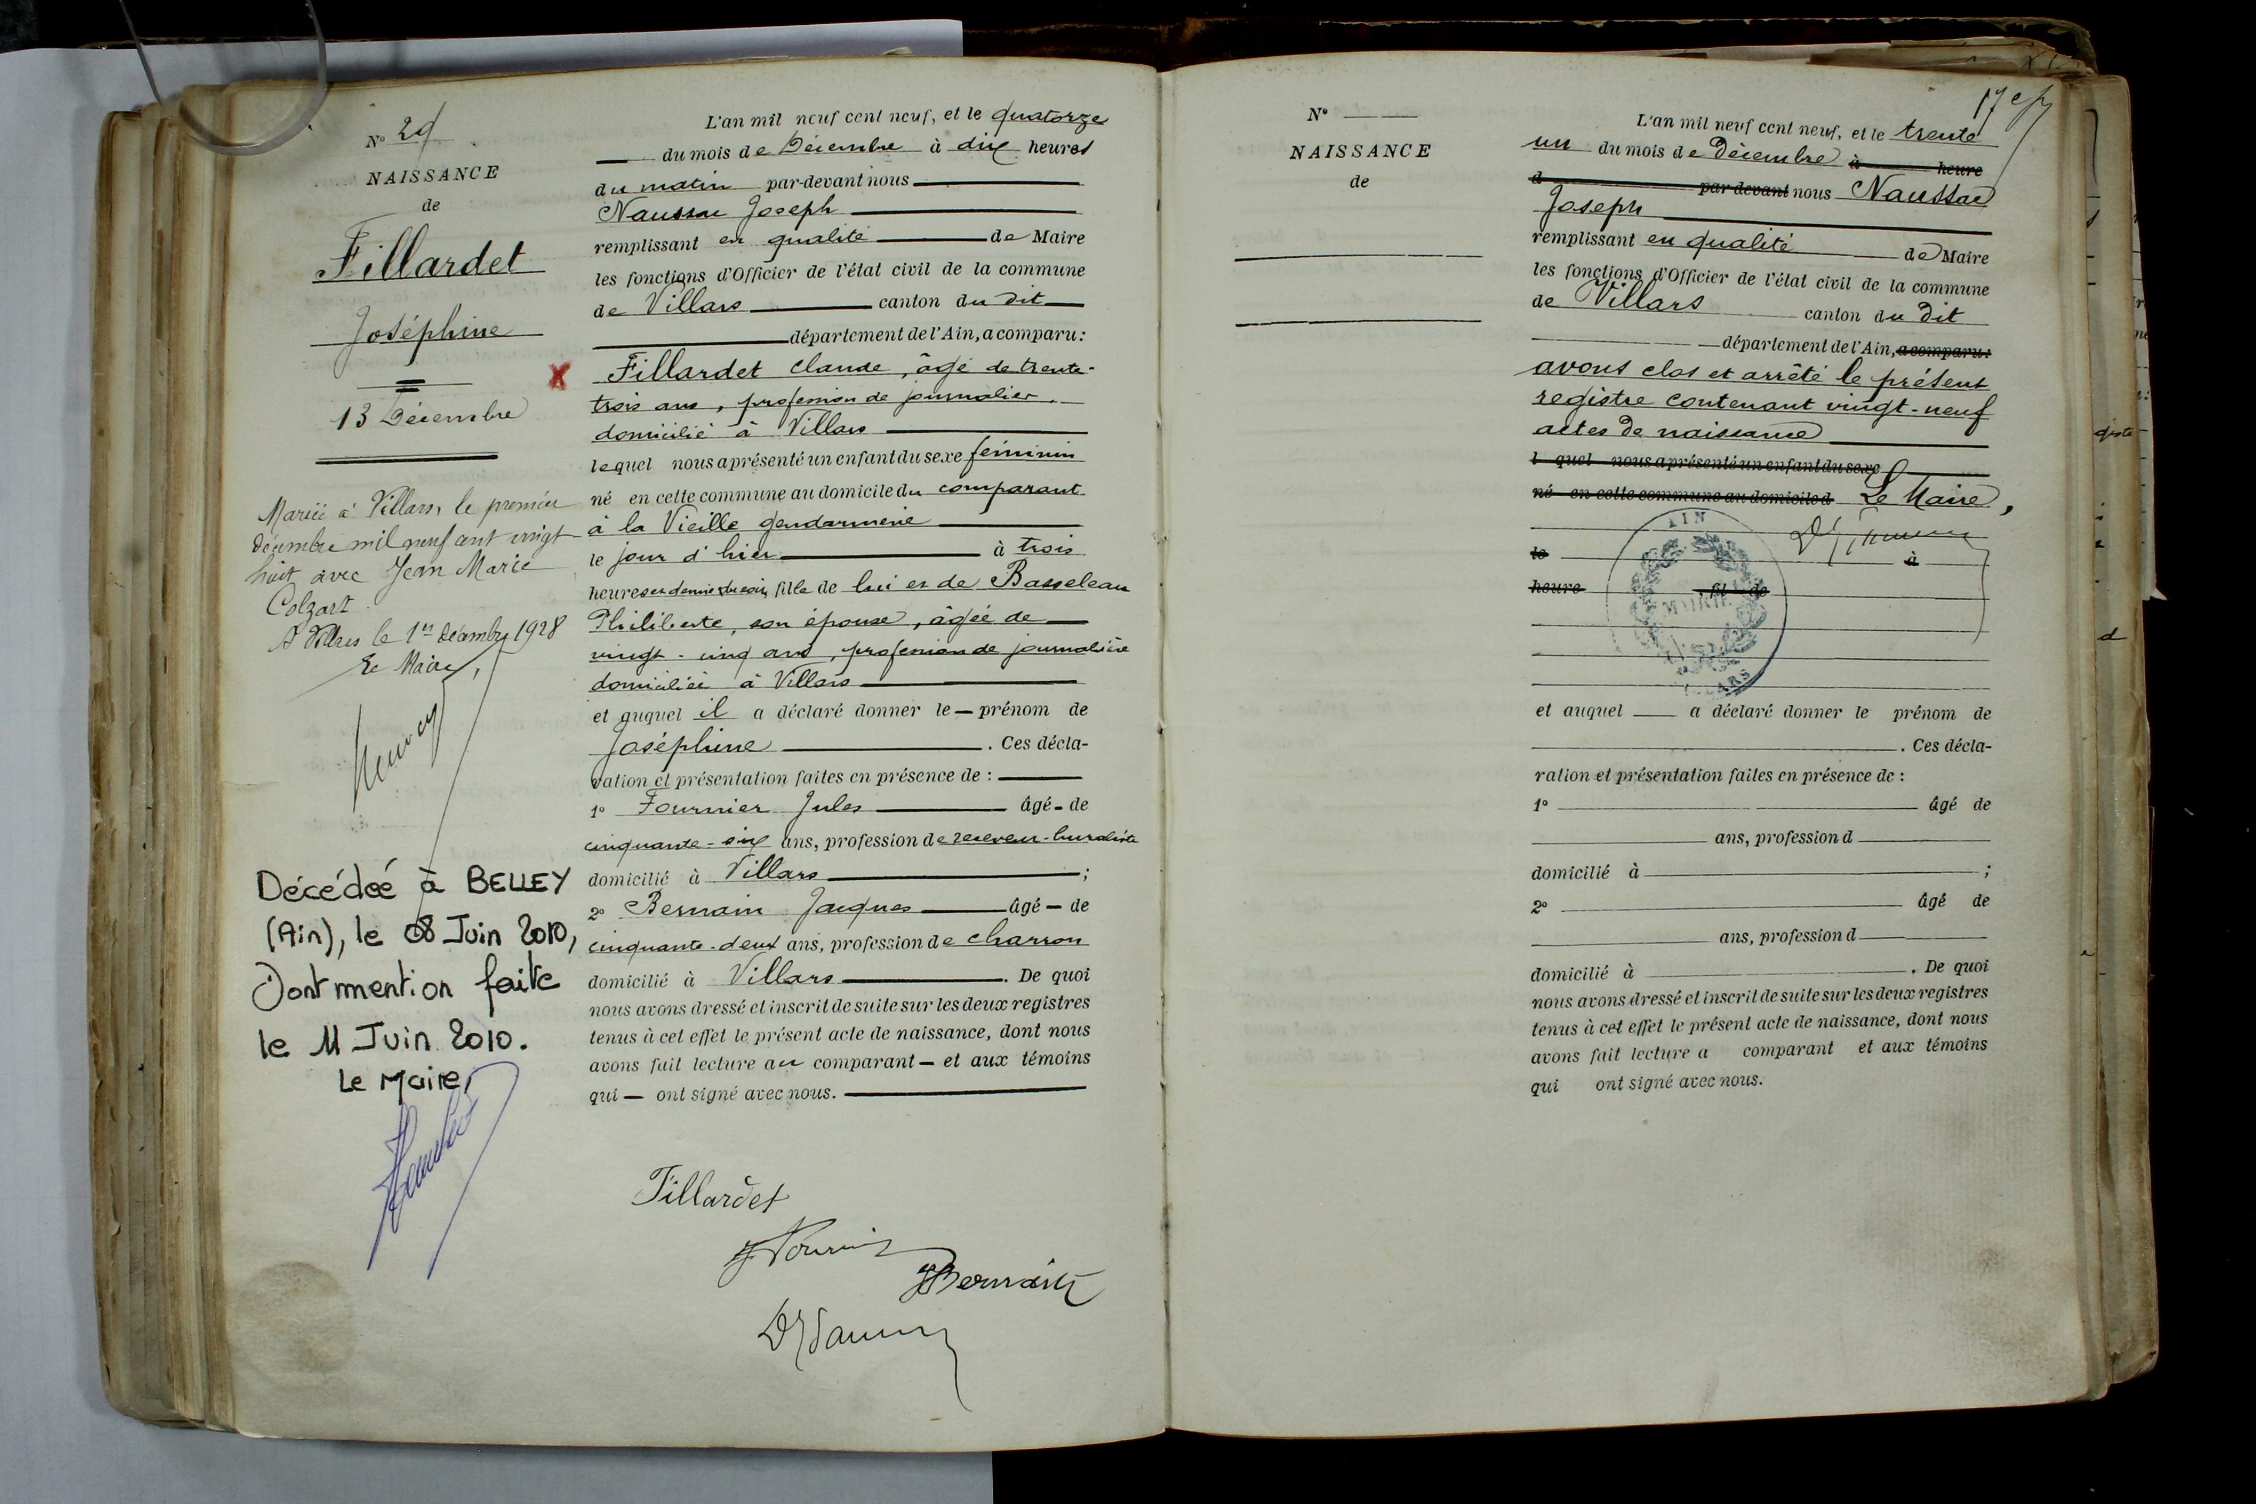 N° 29
NAISSANCE
de
Fillardet
Joséphine
13 Décembre
Mariée à Villars, le premier
décembre mil neuf cent vingt
huit avec Jean Marie
Colzart
A Villars le 1er décembre 1928
Le Maire,
Décédée à BELLEY
(Ain), le 08 Juin 2010,
Dont mention faite
le 11 Juin 2010.
Le Maire,
L'an mil neuf cent neuf, et le quatorze
du mois de Décembre à dix heures
du matin par-devant nous
Naussac Joseph
remplissant en qualité de Maire
les fonctions d'Officier de l'état civil de la commune
de Villars canton du dit
département de l'Ain, a comparu:
X Fillardet Claude, âgé de trente-
trois ans, profession de journalier.
domicilié à Villars
lequel nous a présenté un enfant du sexe féminin
né en cette commune au domicile du comparant
à la Vieille gendarmerie
le jour d'hier à trois
heures et demie du soir, fille de lui et de Basseleau
Philiberte, son épouse, âgée de
vingt-cinq ans, profession de journalière
domiciliée à Villars
et auquel il a déclaré donner le prénom de
Joséphine. Ces décla-
ration et présentation faites en présence de :
1° Fournier Jules âgé de
cinquante-six ans, profession de receveur-buraliste
domicilié à Villars ;
2° Bernain Jacques âgé de
cinquante-deux ans, profession de charron
domicilié à Villars. De quoi
nous avons dressé et inscrit de suite sur les deux registres
tenus à cet effet le présent acte de naissance, dont nous
avons fait lecture au comparant et aux témoins
qui ont signé avec nous.
Fillardet
N°
NAISSANCE
de
L'an mil neuf cent neuf, et le trente
un du mois de Décembre à heure
d par devant nous Naussac
Joseph
remplissant en qualité de Maire
les fonctions d'Officier de l'état civil de la commune
de Villars canton du dit
département de l'Ain, a comparu:
avons clos et arrêté le présent
registre contenant vingt-neuf
actes de naissance
l quel nous a présenté un enfant du sexe
né en cette commune au domicile d Le Maire,
AIN
le à
heure fil de
MAIRIE
et auquel a déclaré donner le prénom de
. Ces décla-
ration et présentation faites en présence de :
1° âgé de
ans, profession d
domicilié à ;
2° âgé de
ans, profession d
domicilié à . De quoi
nous avons dressé et inscrit de suite sur les deux registres
tenus à cet effet le présent acte de naissance, dont nous
avons fait lecture a comparant et aux témoins
qui ont signé avec nous.